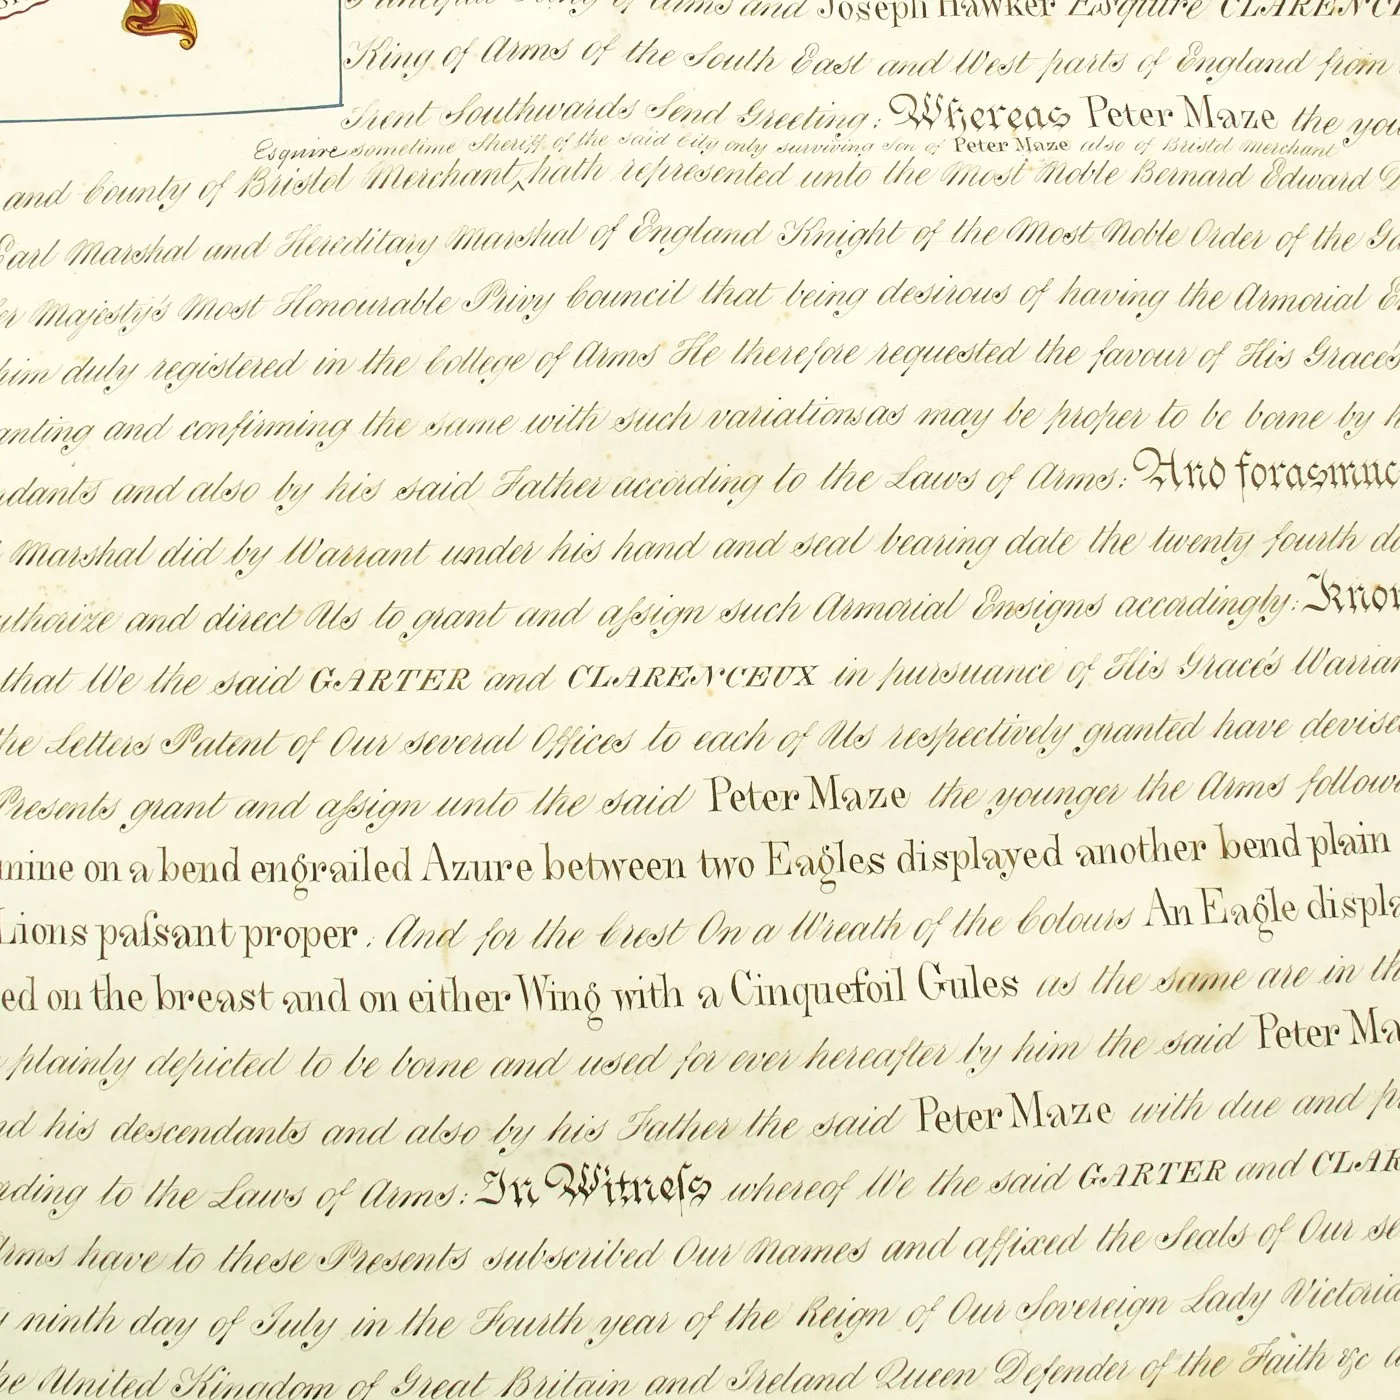 Principal King of Arms and Joseph Hawker Esquire CLARENC
King of Arms of the South East and West parts of England from
Trent Southwards Send Greeting: Whereas Peter Maze the you
Esquire sometime Sheriff of the said City only surviving Son of Peter Maze also of Bristol Merchant
and County of Bristol Merchant, hath represented unto the Most Noble Bernard Edward D
Earl Marshal and Hereditary Marshal of England Knight of the Most Noble Order of the Ga
er Majesty's Most Honourable Privy Council that being desirous of having the Armorial E
him duly registered in the College of Arms He therefore requested the favour of His Grace's
anting and confirming the same with such variations as may be proper to be borne by h
ndants and also by his said Father according to the Laws of Arms: And forasmuc
Marshal did by Warrant under his hand and seal bearing date the twenty fourth da
uthorize and direct Us to grant and aſsign such Armorial Ensigns accordingly: Know
that We the said GARTER and CLARENCEUX in pursuance of His Grace's Warran
the Letters Patent of Our several Offices to each of Us respectively granted have devise
Presents grant and aſsign unto the said Peter Maze the younger the Arms follow
mine on a bend engrailed Azure between two Eagles displayed another bend plain
Lions paſsant proper. And for the Crest On a Wreath of the Colours An Eagle displa
ed on the breast and on either Wing with a Cinquefoil Gules as the same are in th
plainly depicted to be borne and used for ever hereafter by him the said Peter Ma
nd his descendants and also by his Father the said Peter Maze with due and p
rding to the Laws of Arms: In Witneſs whereof We the said GARTER and CLAR
Arms have to these Presents subscribed Our Names and affixed the Seals of Our se
y ninth day of July in the Fourth year of the Reign of Our Sovereign Lady Victoria
he United Kingdom of Great Britain and Ireland Queen Defender of the Faith &c a